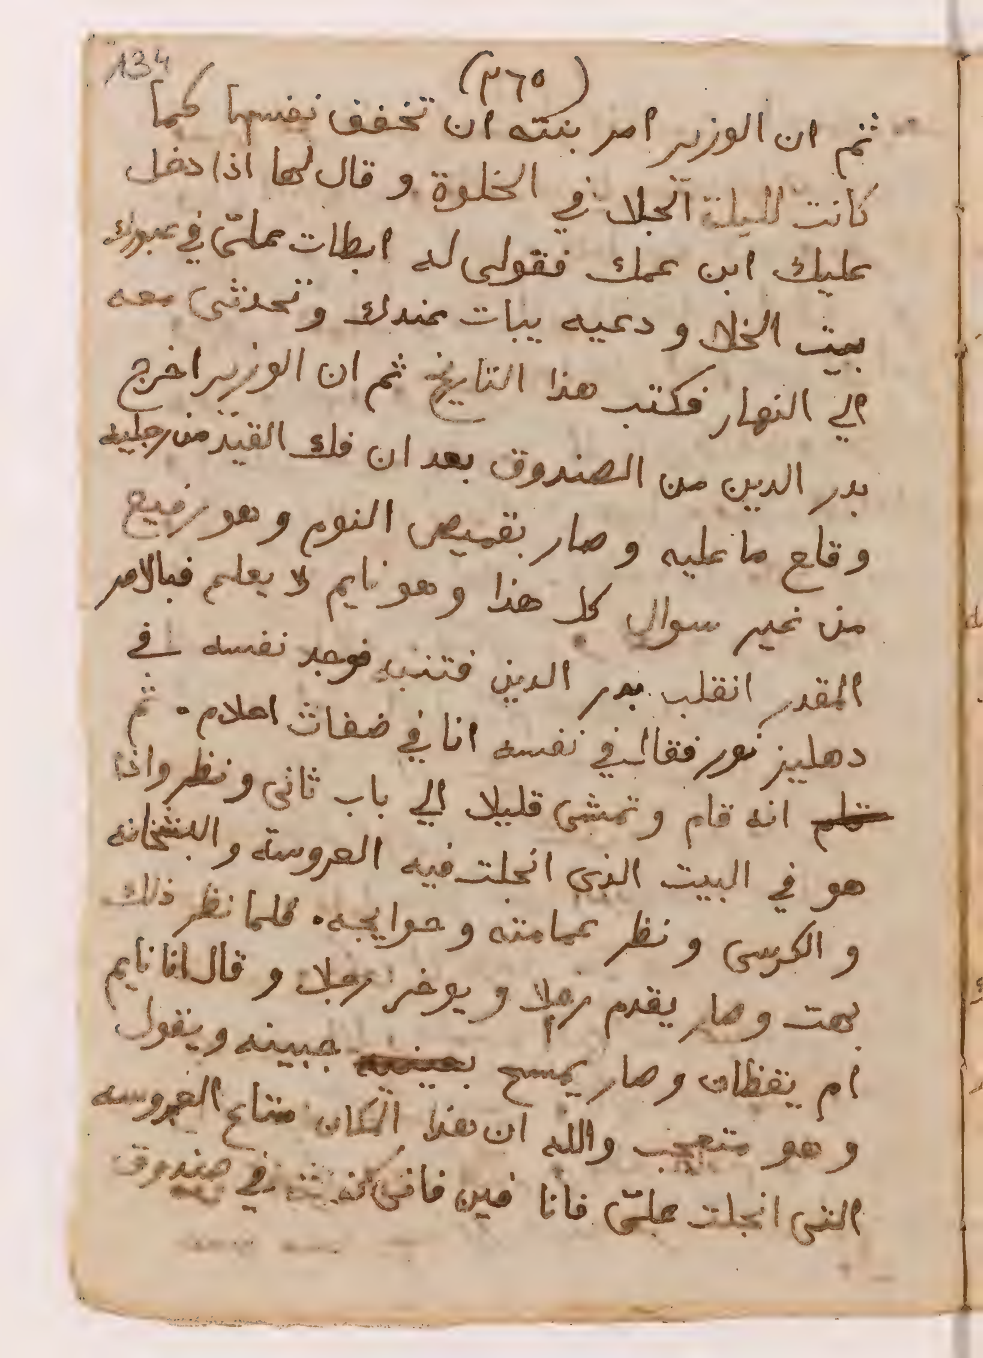 134
(٢٦٥)
ثم ان الوزير امر بنته ان تخفف نفسها كما
كانت لليلة الجلا في الخلوة و قال لها اذا دخل
عليك ابن عمك فقولى له ابطات عليّ في عبورك
بيت الخلا و دعيه يبات عندك و تحدثى معه
الي النهار فكتب هذا التاريخ ثم ان الوزير اخرج
بدر الدين من الصندوق بعد ان فك القيد من رجليه
و قلع ما عليه و صار بقميص النوم و هو رفيع
من غير سوال كل هذا و هو نايم لا يعلم فبالامر
المقدر انقلب بدر الدين فتنبه فوجد نفسه في
دهليز نور فقال في نفسه انا في ضغاث احلام . ثم
انه قام و تمشى قليلا الي باب ثانى و نظر واذا
هو في البيت الذي انجلت فيه العروسة و البشخانه
و الكرسى و نظر عمامته و حوايجه . فلما نظر ذلك
بهت و صار يقدم رجلا و يوخر رجلا و قال انا نايم
ام يقظان و صار يمسح جبينه و يقول
و هو متعجب والله ان هذا المكان متاع العروسه
التى انجلت عليّ فانا فين فانى كنت في صندوق